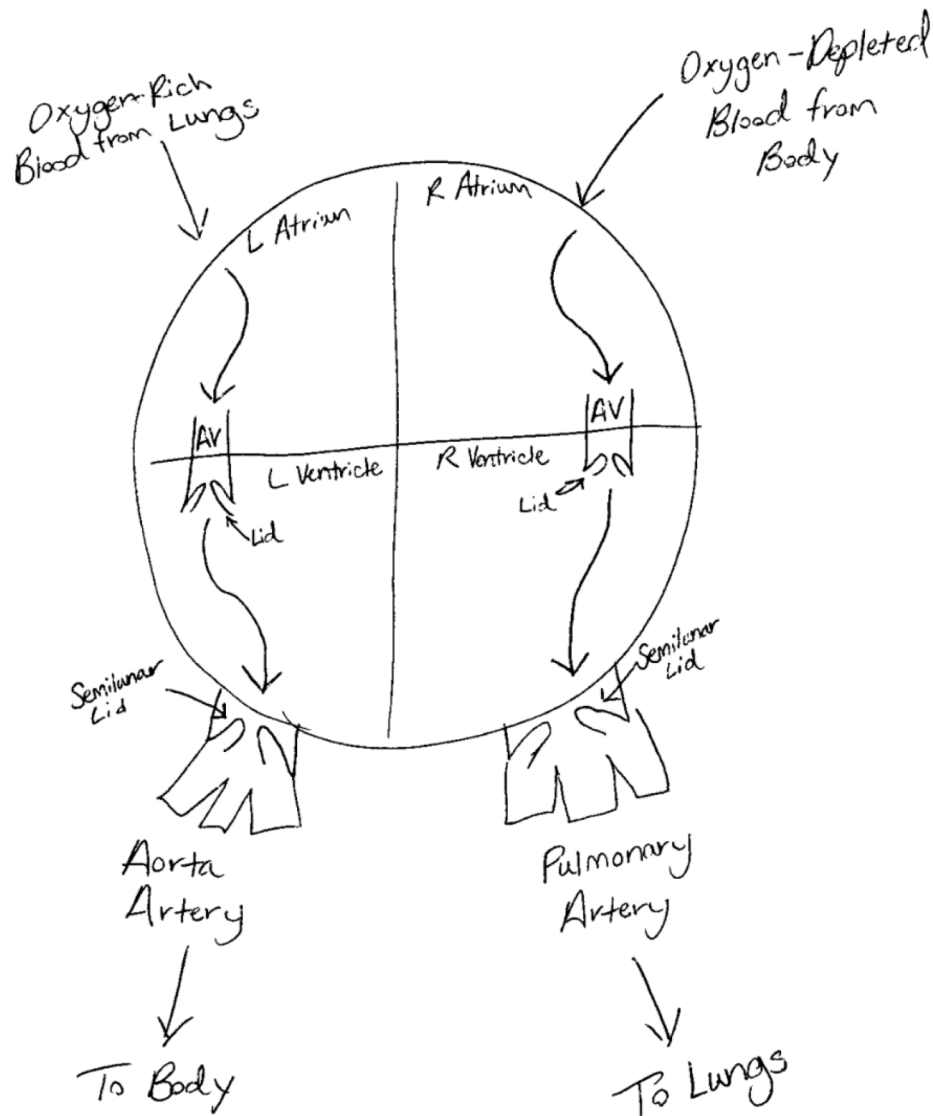 Oxygen-Rich
Blood from Lungs
Oxygen-Depleted
Blood from
Body
L Atrium
R Atrium
AV
AV
L Ventricle
R Ventricle
Lid
Lid
Semilunar
Lid
Semilunar
Lid
Aorta
Artery
Pulmonary
Artery
To Body
To Lungs